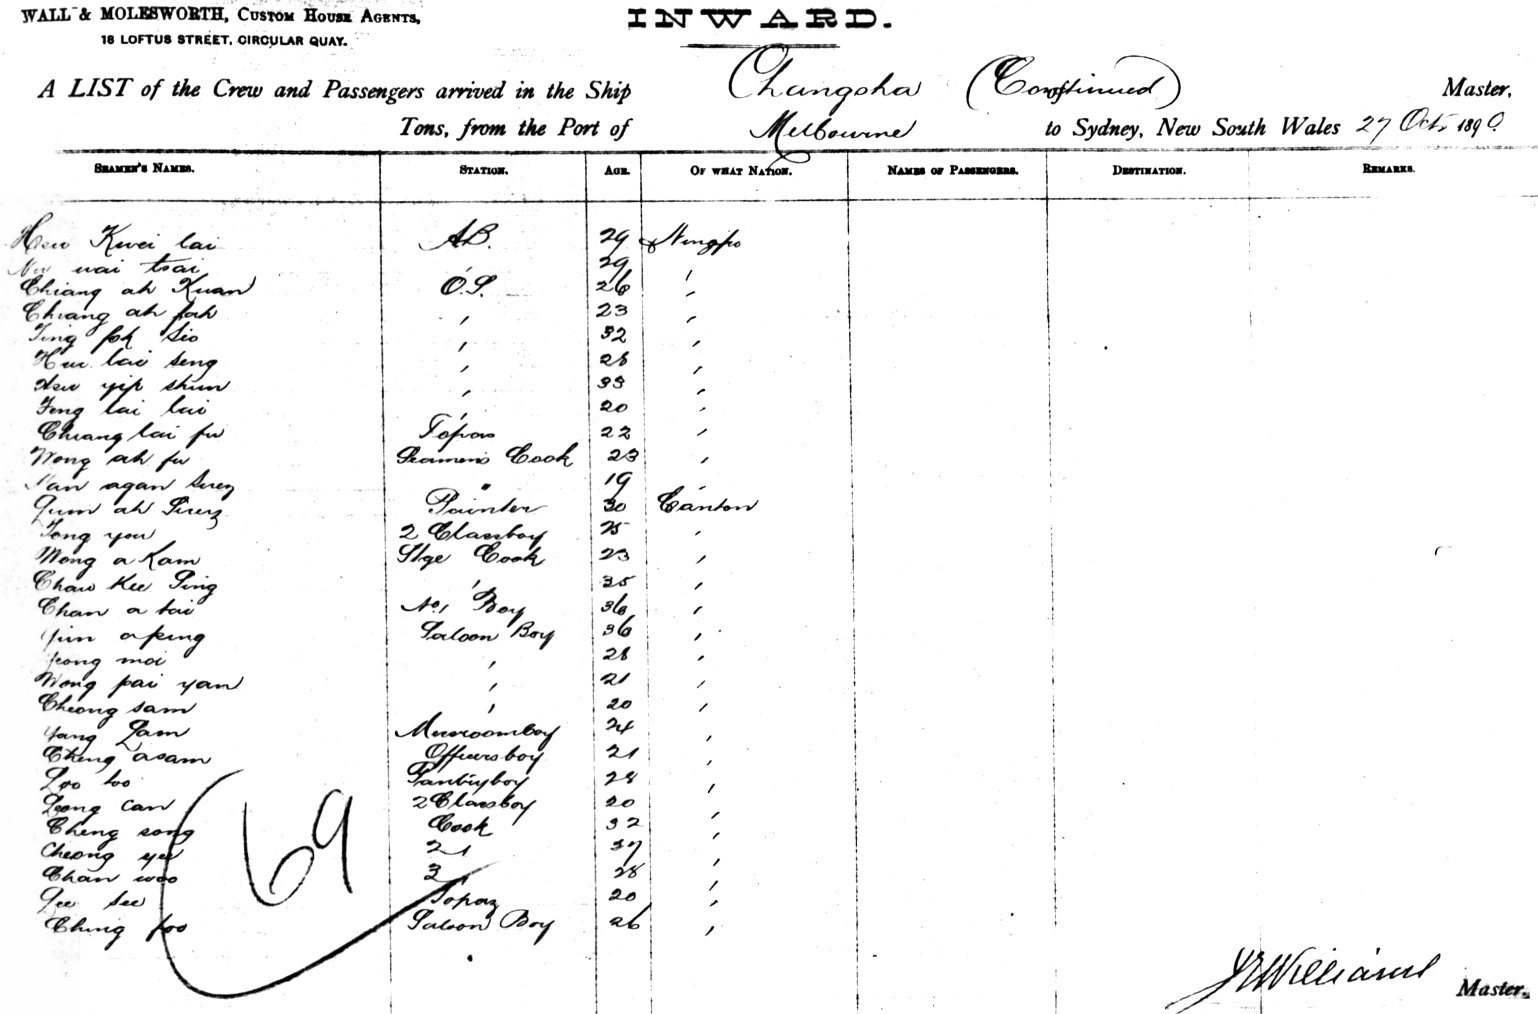 WALL & MOLESWORTH, CUSTOM HOUSE AGENTS,
18 LOFTUS STREET, CIRCULAR QUAY.
INWARD.
A LIST of the Crew and Passengers arrived in the Ship Changsha (Continued) Master,
Tons, from the Port of Melbourne to Sydney, New South Wales 27 Oct 1890
SEAMEN'S NAMES. STATION. AGE. OF WHAT NATION. NAMES OF PASSENGERS. DESTINATION. REMARKS.
Hsu Kwei lai A.B. 29 Ningpo
wai tsai " 29 "
Chiang ah Kuan O.S. 26 "
Chiang ah fah " 23 "
Ting fok Sio " 32 "
lai seng " 28 "
Hsu yip shun " 33 "
Feng lai lai " 20 "
Chiang lai fu Topas 22 "
Wong ah fu Seamens Cook 23 "
agan " 19 "
ah Painter 30 Canton
Tong you 2 Classboy 25 "
Wong a Kam Stge Cook 23 "
Chau Kee Ping " 35 "
Chan a tai No 1 Boy 36 "
Yun aping Saloon Boy 36 "
moi " 28 "
Wong pai yan " 21 "
Cheong sam " 20 "
Yang Lam Messroomboy 24 "
Cheng asam Officersboy 21 "
Loo too Pantryboy 28 "
Leong Can 2 Classboy 20 "
Cheng song Cook 32 "
Cheong yee 2 " 37 "
Chan woo 3 " 28 "
Lee See Topaz 20 "
Ching foo Saloon Boy 26 "
69
Williams Master.